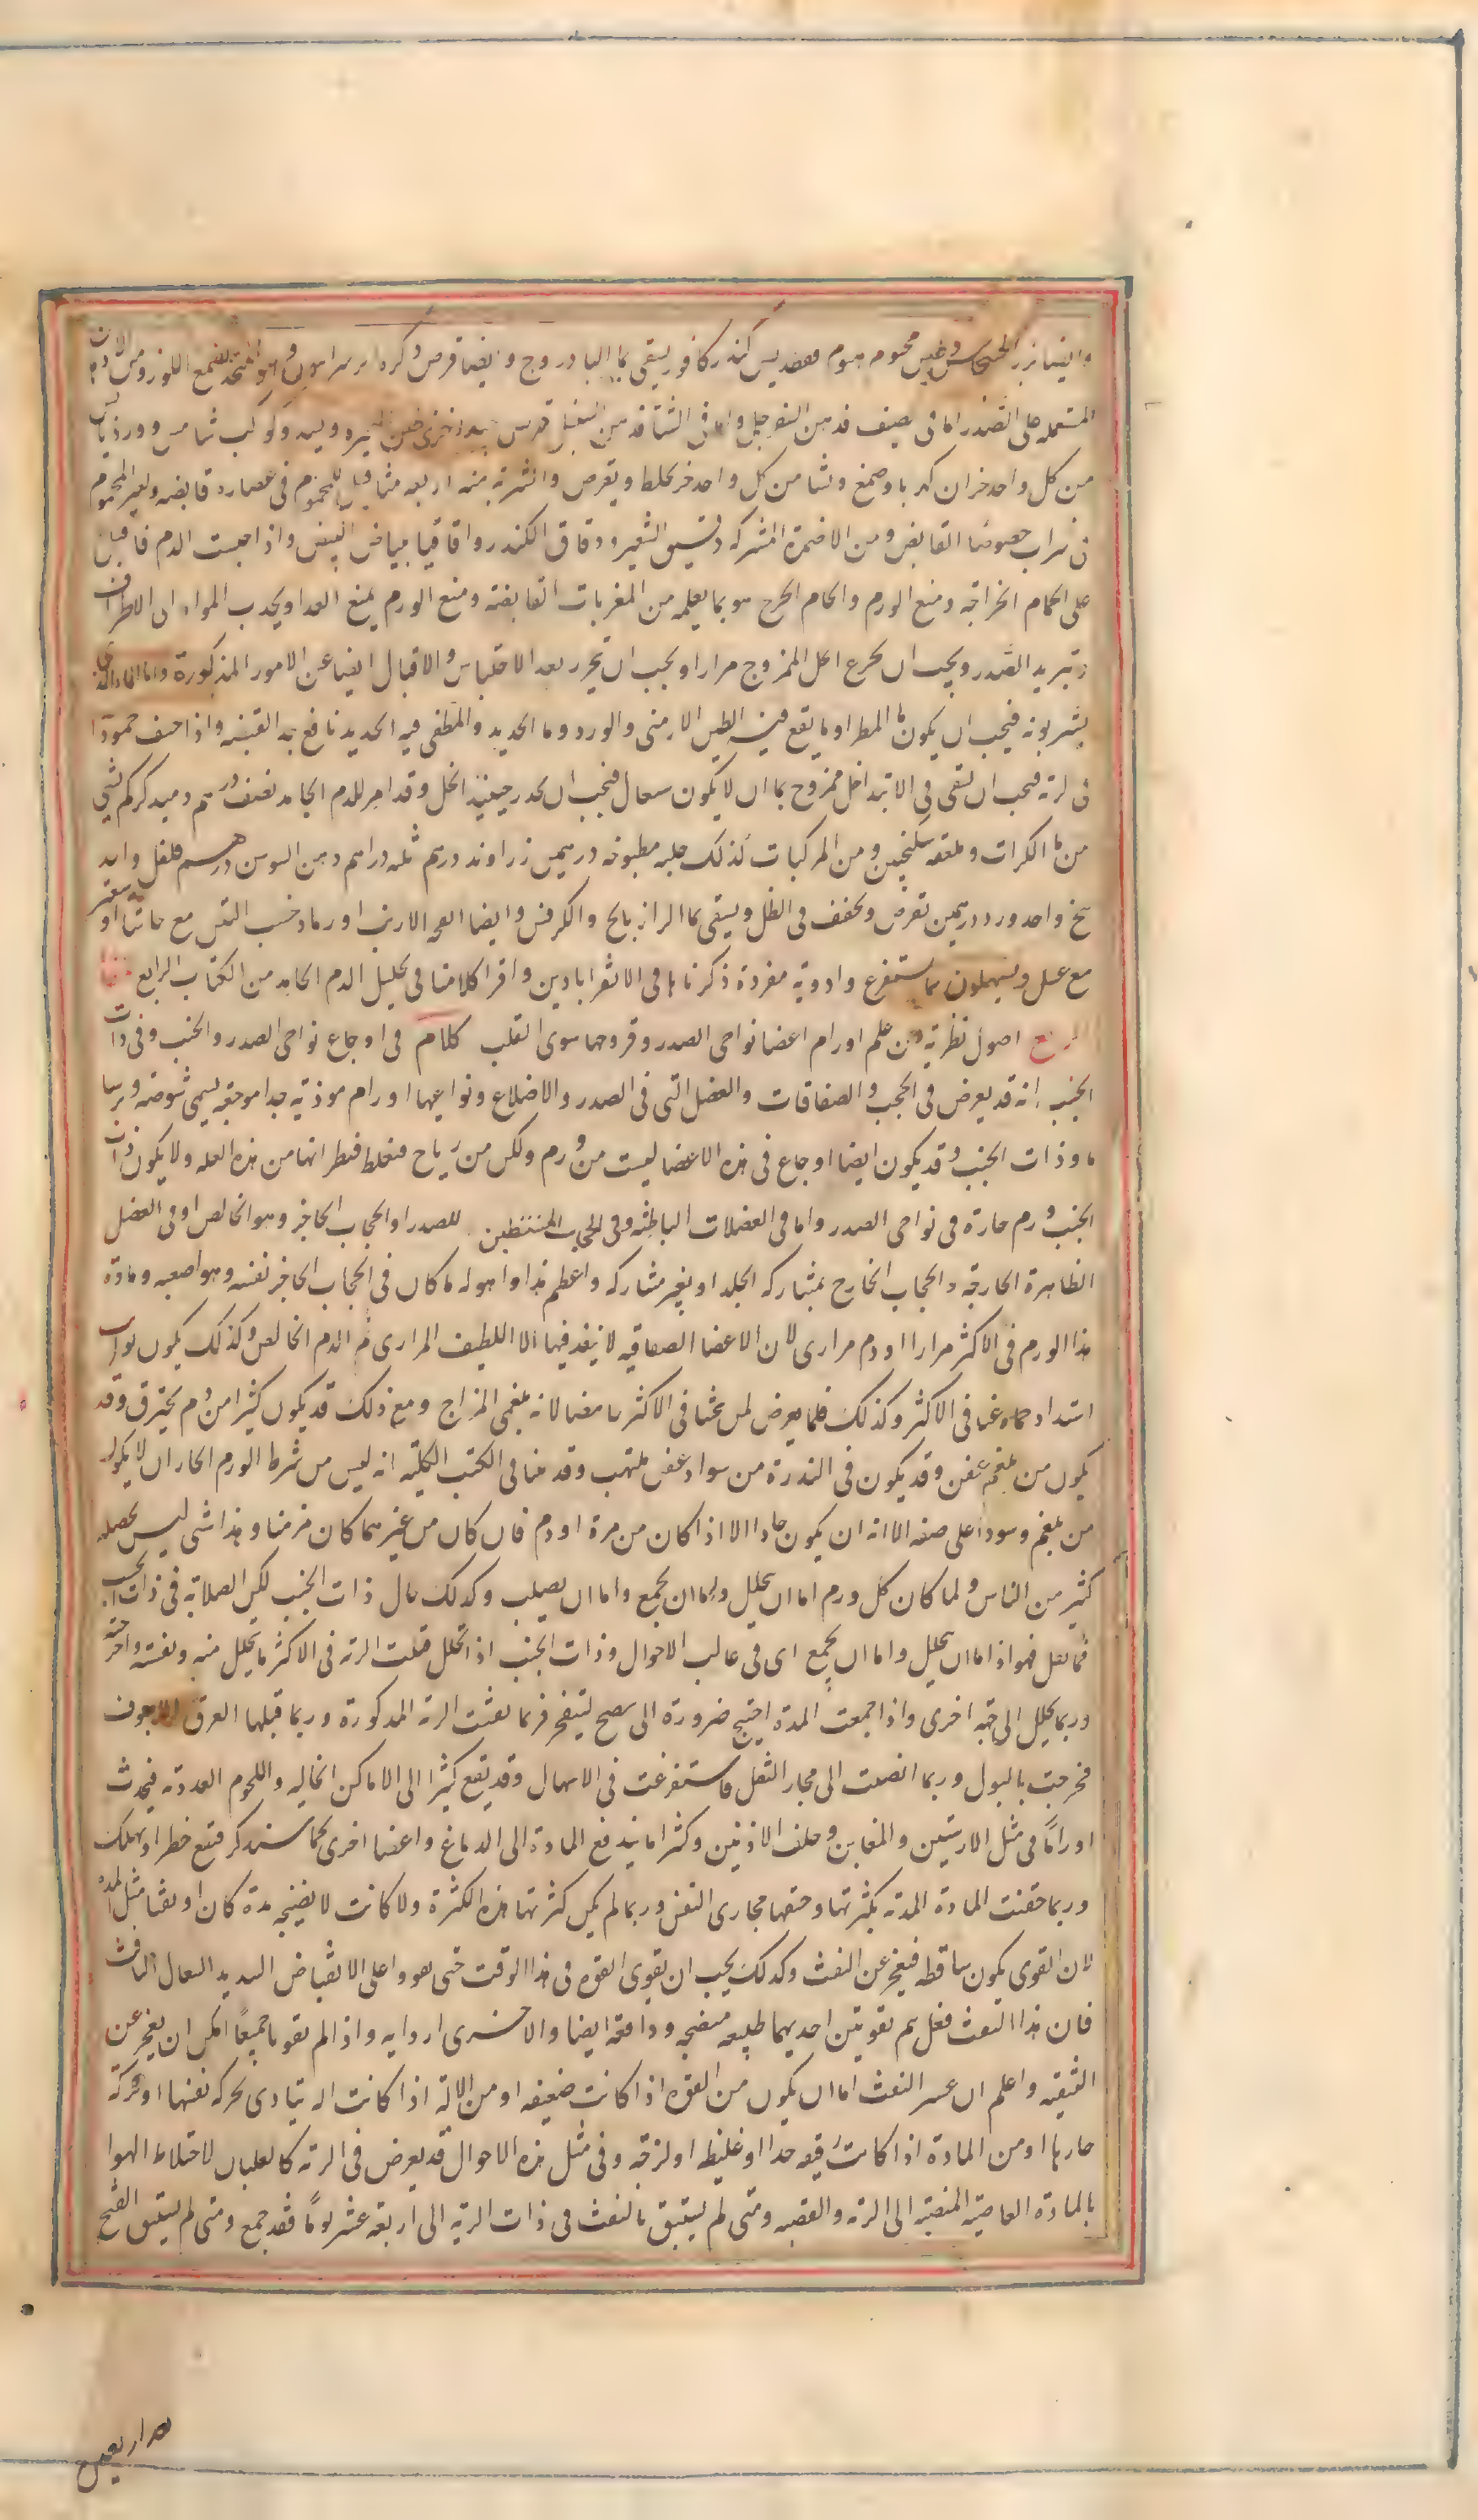 وايضا بزر الخشخاش وطين مختوم هيوفقسطيداس كندر كافور يسقى بماء البادروج وايضا قرص
المشتمله على الصدر اما فى الصيف فدهن السفرجل واما فى الشتا فدهن السنبل قرص وكوكب شاموس وورد يابس
من كل واحد جزان كهربا وصمغ ونشا من كل واحد جز يخلط ويقرص والشربة منه اربعه مثاقيل للمحموم فى عصارة قابضه ولغير المحموم
فى شراب خصوصا القابض ومن الاضمدة المشتركه دقيق الشعير ودقاق الكندر واقاقيا ببياض البيض واذا احتبست الدم فاقبل
على الحام الجراحة ومنع الورم والحام الجرح هو بما يعلمه من المغريات القابضة ومنع الورم بمنع الغدا وبجذب المواد الى الاطراف
وتبريد الصدر ويجب ان يجرع الخل الممزوج مرارا ويجب ان يحرر بعد الاحتباس والاقبال ايضا عن الامور المذكورة واما الماء الذى
يشربونه فيجب ان يكون ماء المطر او ما يقع فيه الطين الارمنى والورد وماء الحديد والمطفى فيه الحديد نافع به القبضه واذا خيف جمود الدم
فى الرئة فيجب ان يسقى فى الابتدا خل ممزوج بما ان لا يكون سعال فيجب ان يحذر حينئذ الخل وقد امر للدم الجامد نصف درهم دميد كركم بشى
من ماء الكراث وملعقه سكنجبين ومن المركبات لذلك حلبه مطبوخه درهمين زراوند درهم ثلثه دراهم دهن السوسن درهم فلفل واحد
بنج واحد ورد درهمين تقرض ويجفف فى الظل ويسقى بماء الرازيانج والكرفس وايضا انفحه الارنب او رماد خشب التين مع حاشا او صعتر
مع عسل ويسهلون بما يستفرغ وادوية مفردة ذكرناها فى الاقراباذين واقرا كلامنا فى تحليل الدم الجامد من الكتاب الرابع
الرابع اصول نظرية من علم اورام اعضا نواحى الصدر وقروحها سوى القلب كلام فى اوجاع نواحى الصدر والجنب وفى ذات
الجنب انه قد يعرض فى الحجب والصفاقات والعضل التى فى الصدر والاضلاع ونواحيها اورام موذية جدا موجعة يسمى شوصة وبرسا
ما وذات الجنب وقد يكون ايضا اوجاع فى هذه الاعضا ليست من ورم ولكن من رياح فتغلظ فيظن انها من هذه العله ولا يكون وذات
الجنب ورم حارة فى نواحى الصدر واما فى العضلات الباطنه وفى الحجاب المستبطن للصدر او الحجاب الحاجز وهو الخالص او فى العضل
الظاهرة الخارجة والحجاب الخارج بمشاركه الجلد او بغير مشاركه واعظم هذا واهوله ما كان فى الحجاب الحاجز نفسه وهو اصعبه ومادة
هذا الورم فى الاكثر مرارا او دم مرارى لان الاعضا الصفاقيه لا ينفذ فيها الا اللطيف المرارى ثم الدم الخالص وكذلك يكون نوايب
اشتداد حماه غبا فى الاكثر وكذلك فلما يعرض لمن يتجشا فى الاكثر حامضا لانه بلغمى المزاج ومع ذلك قد يكون كثيرا من دم يحترق وقد
يكون من بلغم عفن وقد يكون فى الندرة من سواد عفن ملتهب وقد بينا فى الكتب الكليّه انه ليس من شرط الورم الحار ان لا يكون
من بلغم وسودا على صفه الا انه ان يكون حادا الا اذا كان من مرة او دم فان كان من غيرهما كان مزمنا وهذا شى ليس يحصله
كثير من الناس ولما كان كل ورم اما ان يتحلل واما ان يجمع واما ان يصلب وكذلك حال ذات الجنب لكن الصلابه فى ذات الجنب
مما يقل فهو اذا اما ان يتحلل واما ان يجمع اى فى غالب الاحوال وذات الجنب اذا تحلل قبلت الرئه فى الاكثر ما يتحلل منه ونفثته واخرجته
وربما تحلل الى جهه اخرى واذا جمعت المدة احتيج ضرورة الى نضج لينفجر فربما نفثت الرئه المدة المذكورة وربما قبلها العرق الاجوف
فخرجت بالبول وربما انصبت الى مجارى الثفل فاستفرغت فى الاسهال وقد يقع كثيرا الى الاماكن الخاليه واللحوم الغدديه فيحدث
اوراما فى مثل الارنبتين والمغابن وخلف الاذنين وكثرا ما يندفع المادة الى الدماغ واعضا اخرى كما سنذكر فيقع خطر او يهلك
وربما خنقت المادة المدة بكثرتها وحبسها مجارى النفس وربما لم يكن كثرتها هذه الكثرة ولا كانت الا نضيجه مدة كان او نفثا مثل المدة
لان القوى يكون ساقطه فيعجز عن النفث وكذلك يجب ان يقوى القوة فى هذا الوقت حتى تقوى على الانقباض الشديد السعال النافث
فان هذا النفث فعل يتم بقوتين احديهما طبيعه منضجه ودافعه ايضا والاخرى اراديه واذا لم تقويا جميعا امكن ان يعجز عن
التنقيه واعلم ان عسر النفث اما ان يكون من القوة اذا كانت ضعيفه او من الاله اذا كانت اله يتاذى بحركه نفسها او حركة
جارها او من المادة اذا كانت رقيقه جدا او غليظه او لزجه وفى مثل هذه الاحوال قد يعرض فى الرئه كالغليان لاختلاط الهوا
بالمادة العاصية المنصبة الى الرئه والقصبه ومتى لم يستبق بالنفث فى ذات الرئه الى اربعه عشر يوما فقد جمع ومتى لم يستبق القيح
اربعين